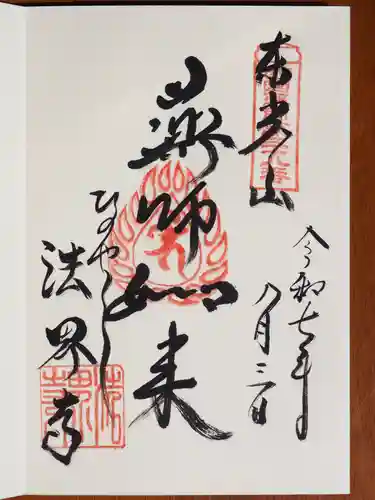 東光山
令和七年
八月三日
薬師如来
ひのやくし
法界寺